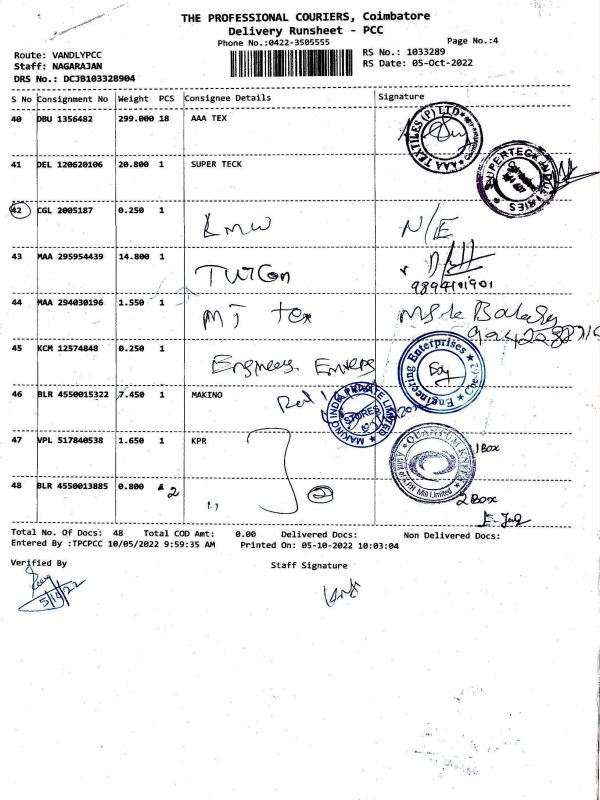 THE PROFESSIONAL COURIERS, Coimbatore
Delivery Runsheet - PCC
Phone No.:0422-3505555
Page No.:4
Route: VANDLYPCC
RS No.: 1033289
Staff: NAGARAJAN
RS Date: 05-Oct-2022
DRS No.: DCJB103328904
S No Consignment No Weight PCS Consignee Details Signature
40 DBU 1356482 299.000 18 AAA TEX
AAA TEXTILES (P) LTD
41 DEL 120620106 20.800 1 SUPER TECK
SUPERTECH INDUSTRIES
42 CGL 2005187 0.250 1 LMW N/E
43 MAA 295954439 14.800 1
44 MAA 294030196 1.550 1 MJ tex
45 KCM 12574848 0.250 1
Engineering Enterprises
46 BLR 4550015322 7.450 1 MAKINO
MAKINO INDIA PRIVATE LIMITED
STORES
47 VPL 517840538 1.650 1 KPR 1 Box
QUANTUM KNITS
KPR Mill Limited
48 BLR 4550013885 0.800 2 ,, 2 2 Box
Total No. Of Docs: 48 Total COD Amt: 0.00 Delivered Docs: Non Delivered Docs:
Entered By :TPCPCC 10/05/2022 9:59:35 AM Printed On: 05-10-2022 10:03:04
Verified By Staff Signature
5/10/22